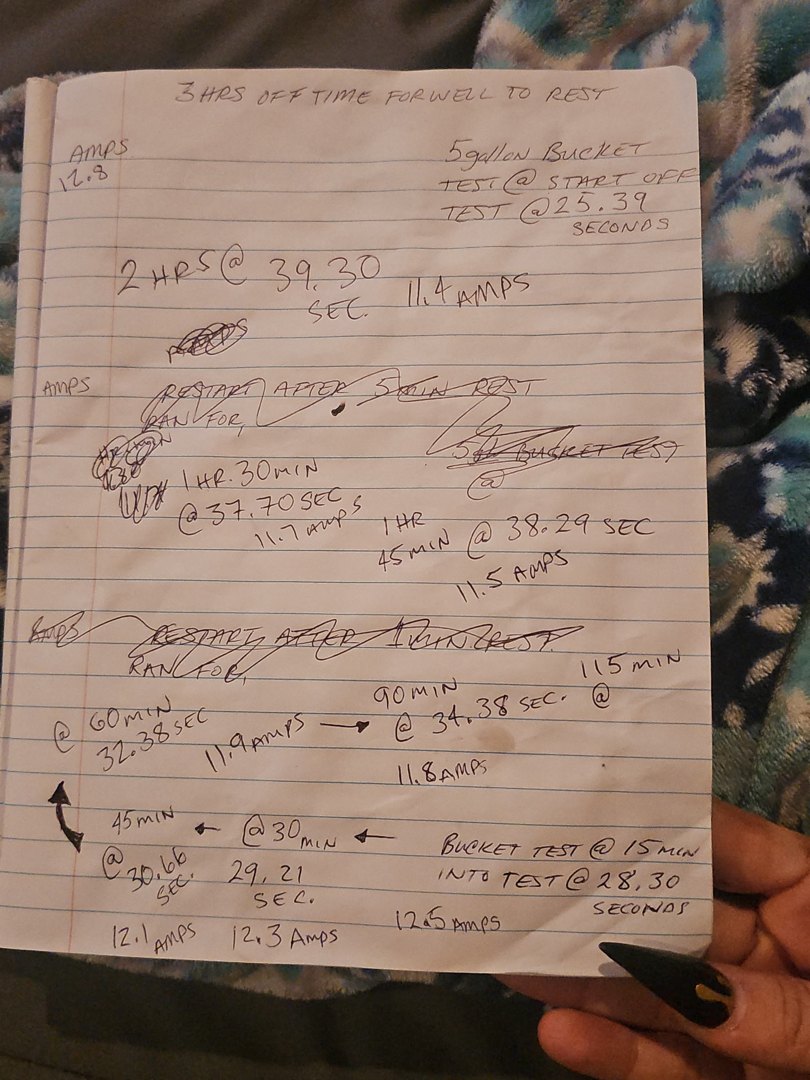 3 HRS OFF TIME FOR WELL TO REST
AMPS
12.8
5 gallon BUCKET
TEST @ START OFF
TEST @ 25.39
SECONDS
2 HRS @ 39.30
SEC.
11.4 AMPS
AMPS
AMPS
RESTART AFTER 5 MIN REST
RAN FOR,
BUCKET TEST
@
1 HR. 30 MIN
@ 37.70 SEC
11.7 AMPS
1 HR
45 MIN @ 38.29 SEC
11.5 AMPS
AMPS
RESTART AFTER 1 MIN REST.
RAN FOR,
@ 60 MIN
32.38 SEC
11.9 AMPS →
90 MIN
@ 34.38 SEC.
11.8 AMPS
115 MIN
@
BUCKET TEST @ 15 MIN
INTO TEST @ 28.30
SECONDS
12.5 AMPS
← @ 30 MIN ←
29.21
SEC.
12.3 AMPS
45 MIN
@ 30.66
SEC.
12.1 AMPS